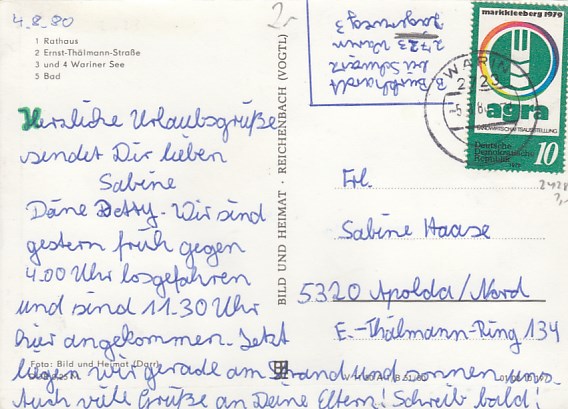 4.8.80
1 Rathaus
2 Ernst-Thälmann-Straße
3 und 4 Wariner See
5 Bad
Herzliche Urlaubsgrüße
sendet Dir lieben
Sabine
Däne Betty. Wir sind
gestern früh gegen
4.00 Uhr losgefahren
und sind 11.30 Uhr
hier angekommen. Jetzt
liegen wir gerade am Strand und sonnen uns.
Auch viele Grüße an Deine Eltern! Schreib bald!
Foto: Bild und Heimat (Darr)
BILD UND HEIMAT · REICHENBACH (VOGTL)
B. Burkhardt
bei Schwarz
2723 Warin
3
markkleeberg 1979
agra
LANDWIRTSCHAFTSAUSSTELLUNG
Deutsche
Demokratische
Republik
10
WARIN
Frl.
Sabine Haase
5320 Apolda/Nord
E.-Thälmann-Ring 134